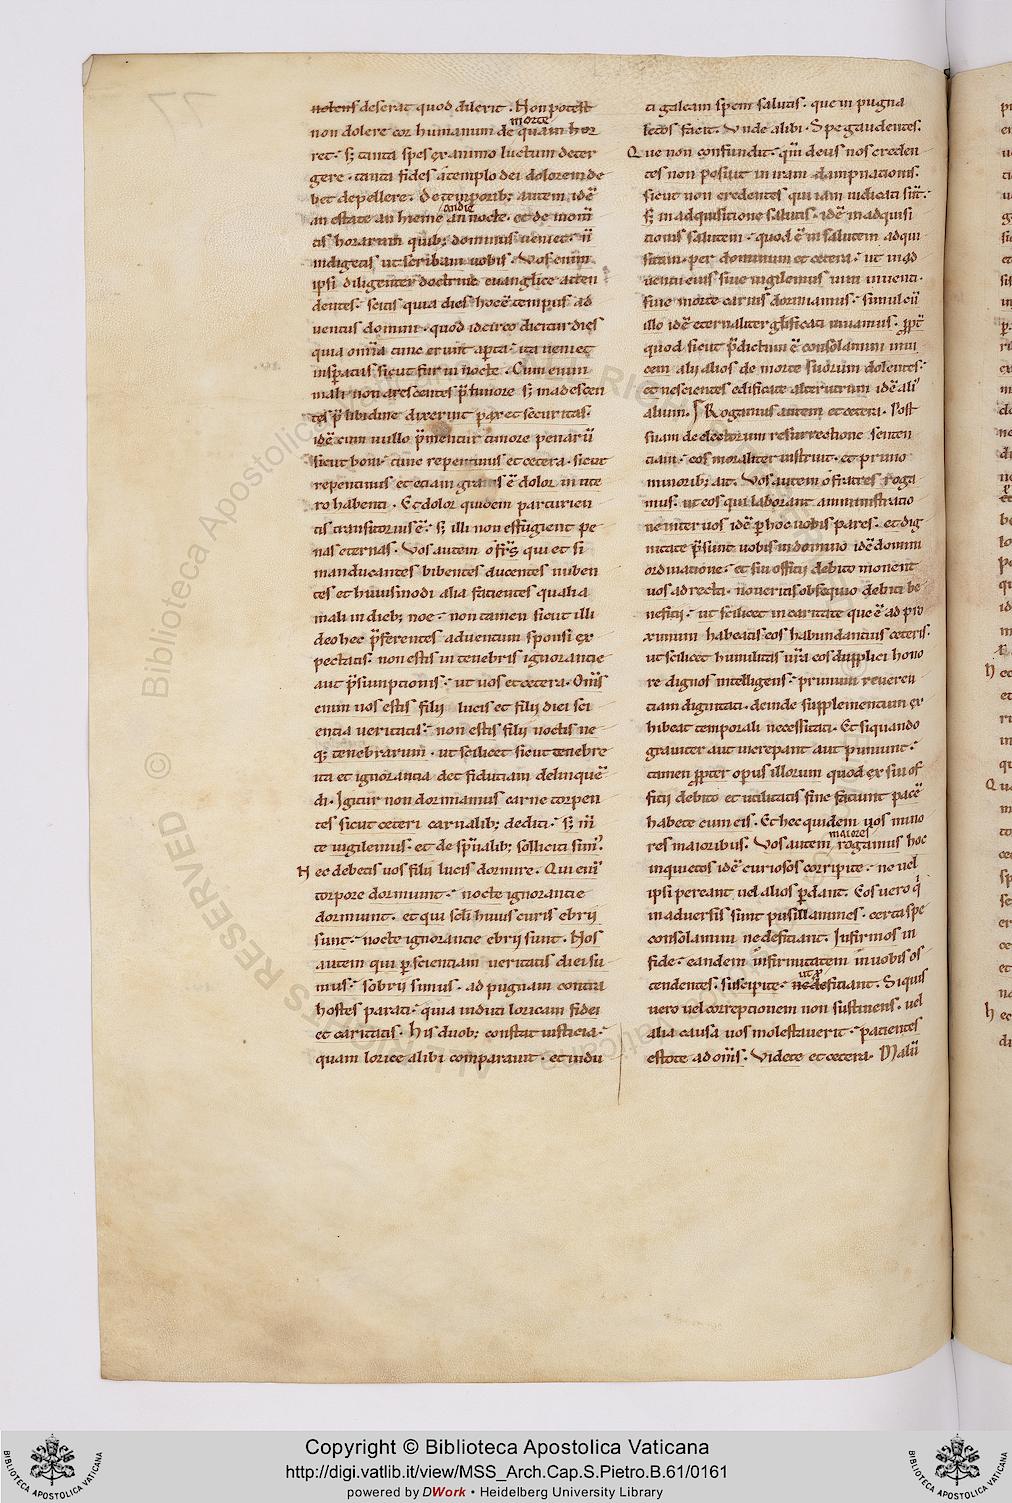 nolens deserat quod dilexit. Non potest
morte
non dolere cor humanum de quam hor
ret. sʒ tanta spes ex animo luctum deter
gere. tanta fides a templo dei dolorem de
bet depellere. De temporibꝫ autem idē
an die
an estate an hieme an nocte. et de momē
tis horarum quibꝫ dominus veniet. ñ
indigetis ut scribam vobis. Vos enim
ipsi diligenter doctrine evanglice atten
dentes. scitis quia dies hoc ē tempus ad
ventus domini. quod idcirco dicitur dies
quia omīa tunc erunt apta. ita veniet
insꝑatus sicut fur in nocte. Cum enim
mali non arescentes p̄ timore sʒ madescen
tes p̄ libidine dixerint pax et securitas.
idē cum nullo p̄mentur timore penarū
sicut boni. tunc repentinus et cetera. sicut
repentinus et etiam gravis ē dolor in ute
ro habenti. Et dolor quidem parturien
tis transitorius ē. sʒ illi non effugient pe
nas eternas. Vos autem o frs̄ qui et si
manducantes bibentes ducentes nuben
tes et huiusmodi alia facientes qualia
mali in diebꝫ noe. non tamen sicut illi
deo hec p̄ferentes adventum sponsi ex
pectatis. non estis in tenebris ignorantie
aut p̄sumptionis. ut vos et cetera. Om̄s
enim vos estis filij lucis et filij diei sci
entia veritatis. non estis filij noctis ne
qꝫ tenebrarum. ut scilicet sicut tenebre
ita et ignorantia det fiduciam delinquē
di. Igitur non dormiamus carne torpen
tes sicut ceteri carnalibꝫ dediti. sʒ m̄
te vigilemus. et de spūalibꝫ solliciti sim᷒.
Nec debetis vos filij lucis dormire. Qui eni᷒
torpore dormiunt. nocte ignorantie
dormiunt. et qui scl̄i huius curis ebrij
sunt. nocte ignorantie ebrij sunt. Nos
autem qui ꝑ scientiam veritatis diei su
mus. sobrij simus. ad pugnam contra
hostes parati. quia induti loricam fidei
et caritatis. His duobꝫ constat iusticia.
quam lorice alibi comparavit. et indu
ti galeam spem salutis. que in pugna
letos facit. Vnde alibi. Spe gaudentes.
Que non confundit. qm̄ deus nos creden
tes non posuit in iram dampnationis.
sicut non credentes qui iam iudicati sūt.
sʒ in adquisitione salutis. idē in adquisi
tionis salutem. quod ē in salutem adqui
sitam. per dominum et cetera. ut in ad
ventu eius sive vigilemus vivi inventi.
sive morte carnis dormiamus. simul cū
illo idē eternaliter glificati vivamus. ꝓpt̄
quod sicut p̄dictum ē consolamini invi
cem alij alios de morte suorum dolentes.
et nescientes edificate alterutrum idē ali᷒
alium. Rogamus autem et cetera. Post
suam de electorum resurrectione senten
tiam. eos moraliter instruit. et primo
minoribꝫ ait. Vos autem o fratres roga
mus. ut eos qui laborant amministratio
ne inter vos idē ꝑ hoc vobis pares. et dig
nitate p̄sunt vobis in domino idē domini
ordinatione. et sui officij debito monent
vos ad recta. noveritis obsequio debiti be
neficij. ut scilicet in caritate que ē ad pro
ximum habeatis eos habundantius ceteris.
ut scilicet humilitas vr̄a eos duplici hono
re dignos intelligens. primum reveren
tiam dignitati. deinde supplementum ex
hibeat temporali necessitati. Et si quando
graviter aut increpant aut puniunt.
tamen ꝓpter opus illorum quod ex sui of
ficij debito et utilitatis sine faciunt pacē
habete cum eis. Et hec quidem vos mino
maiores
res maioribus. Vos autem rogamus hoc
inquietos idē curiosos corripite. ne vel
ipsi pereant vel alios ꝑdant. Eos vero q᷒
in adversis sunt pusillanimes. certa spe
consolamini ne deficiant. Infirmos in
fide. eandem infirmitatem in vobis os
tendentes. suscipite. ne deficiant. Si quis
vero vel correptionem non sustinens. vel
alia causa vos molestaverit. patientes
estote ad om̄s. Videte et cetera. Malū
Copyright © Biblioteca Apostolica Vaticana
http://digi.vatlib.it/view/MSS_Arch.Cap.S.Pietro.B.61/0161
powered by DWork • Heidelberg University Library